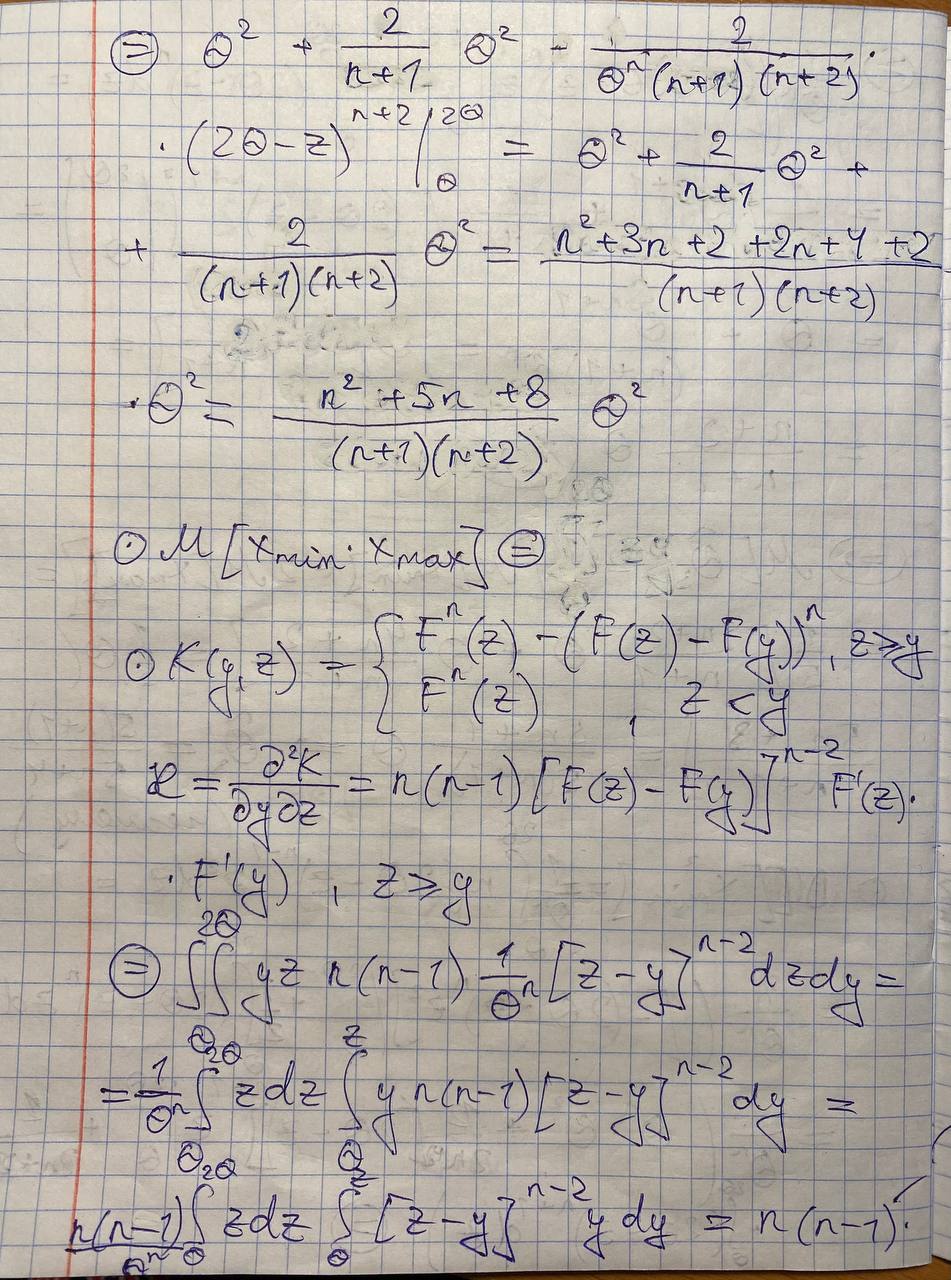 ⊜ Θ² + 2/(n+1) Θ² - 2/(Θⁿ(n+1)(n+2)) ·
· (2Θ-z)ⁿ⁺² |_Θ^2Θ = Θ² + 2/(n+1) Θ² +
+ 2/((n+1)(n+2)) Θ² = (n²+3n+2+2n+4+2)/((n+1)(n+2))
· Θ² = (n²+5n+8)/((n+1)(n+2)) Θ²
⊙ M[xmin · xmax] ⊜
⊙ K(y,z) = { Fⁿ(z) - (F(z) - F(y))ⁿ, z⩾y
Fⁿ(z) , z < y
ϰ = ∂²K/∂y∂z = n(n-1) [F(z) - F(y)]ⁿ⁻² F'(z) ·
· F'(y) , z ⩾ y
⊜ ∫∫_Θ^2Θ yz n(n-1) 1/Θⁿ [z-y]ⁿ⁻² dzdy =
= 1/Θⁿ ∫_Θ^2Θ zdz ∫_Θ^z y n(n-1) [z-y]ⁿ⁻² dy =
n(n-1)/Θⁿ ∫_Θ^2Θ zdz ∫_Θ^z [z-y]ⁿ⁻² y dy = n(n-1) ·